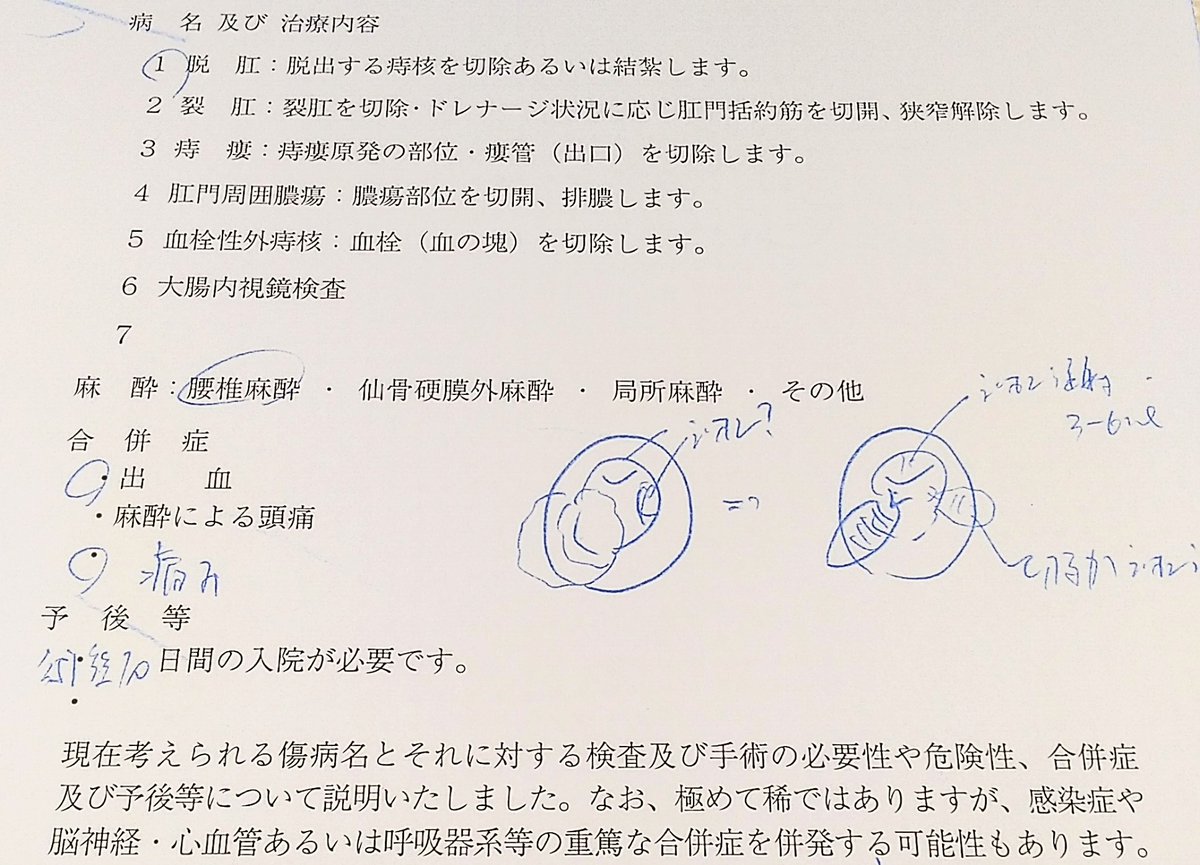 病 名 及び 治療内容
1 脱 肛：脱出する痔核を切除あるいは結紮します。
2 裂 肛：裂肛を切除・ドレナージ状況に応じ肛門括約筋を切開、狭窄解除します。
3 痔 瘻：痔瘻原発の部位・瘻管（出口）を切除します。
4 肛門周囲膿瘍：膿瘍部位を切開、排膿します。
5 血栓性外痔核：血栓（血の塊）を切除します。
6 大腸内視鏡検査
7
麻 酔：腰椎麻酔 ・ 仙骨硬膜外麻酔 ・ 局所麻酔 ・ その他
ジオン注射
3-6
ジオン?
合 併 症
・出 血
・麻酔による頭痛
・ 痛み
予 後 等
・ 日間の入院が必要です。
・
現在考えられる傷病名とそれに対する検査及び手術の必要性や危険性、合併症
及び予後等について説明いたしました。なお、極めて稀ではありますが、感染症や
脳神経・心血管あるいは呼吸器系等の重篤な合併症を併発する可能性もあります。